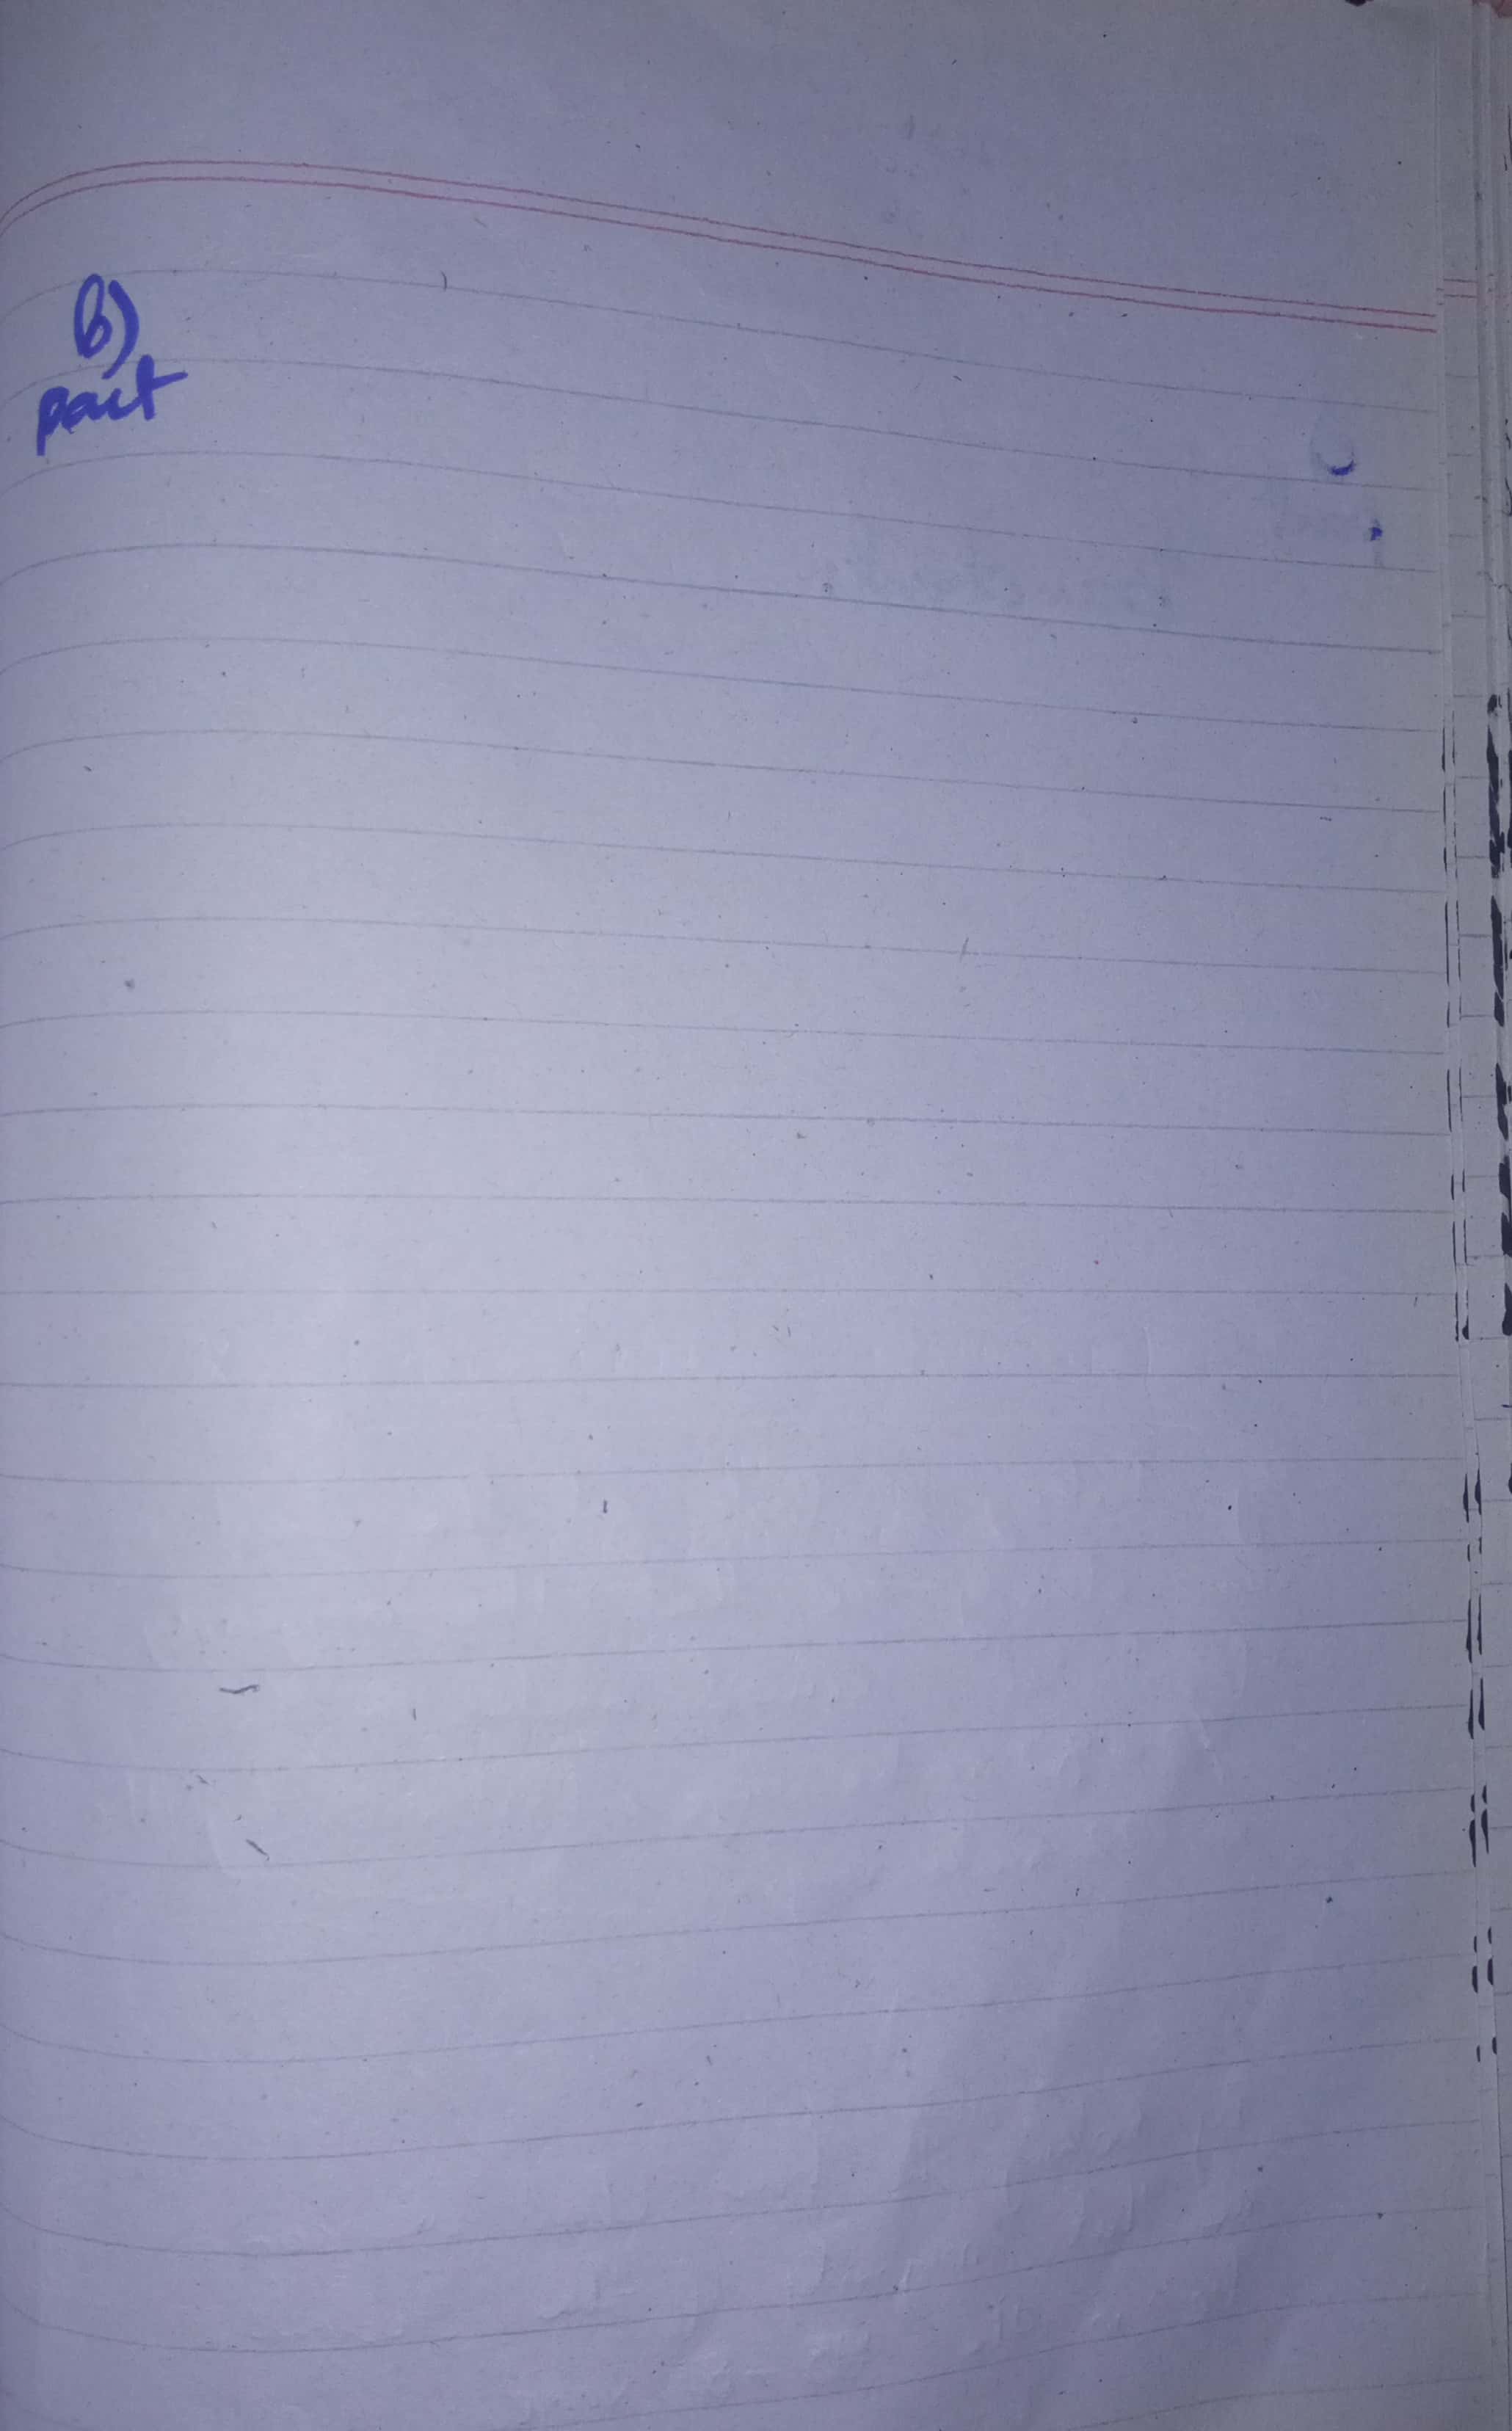 b)
part